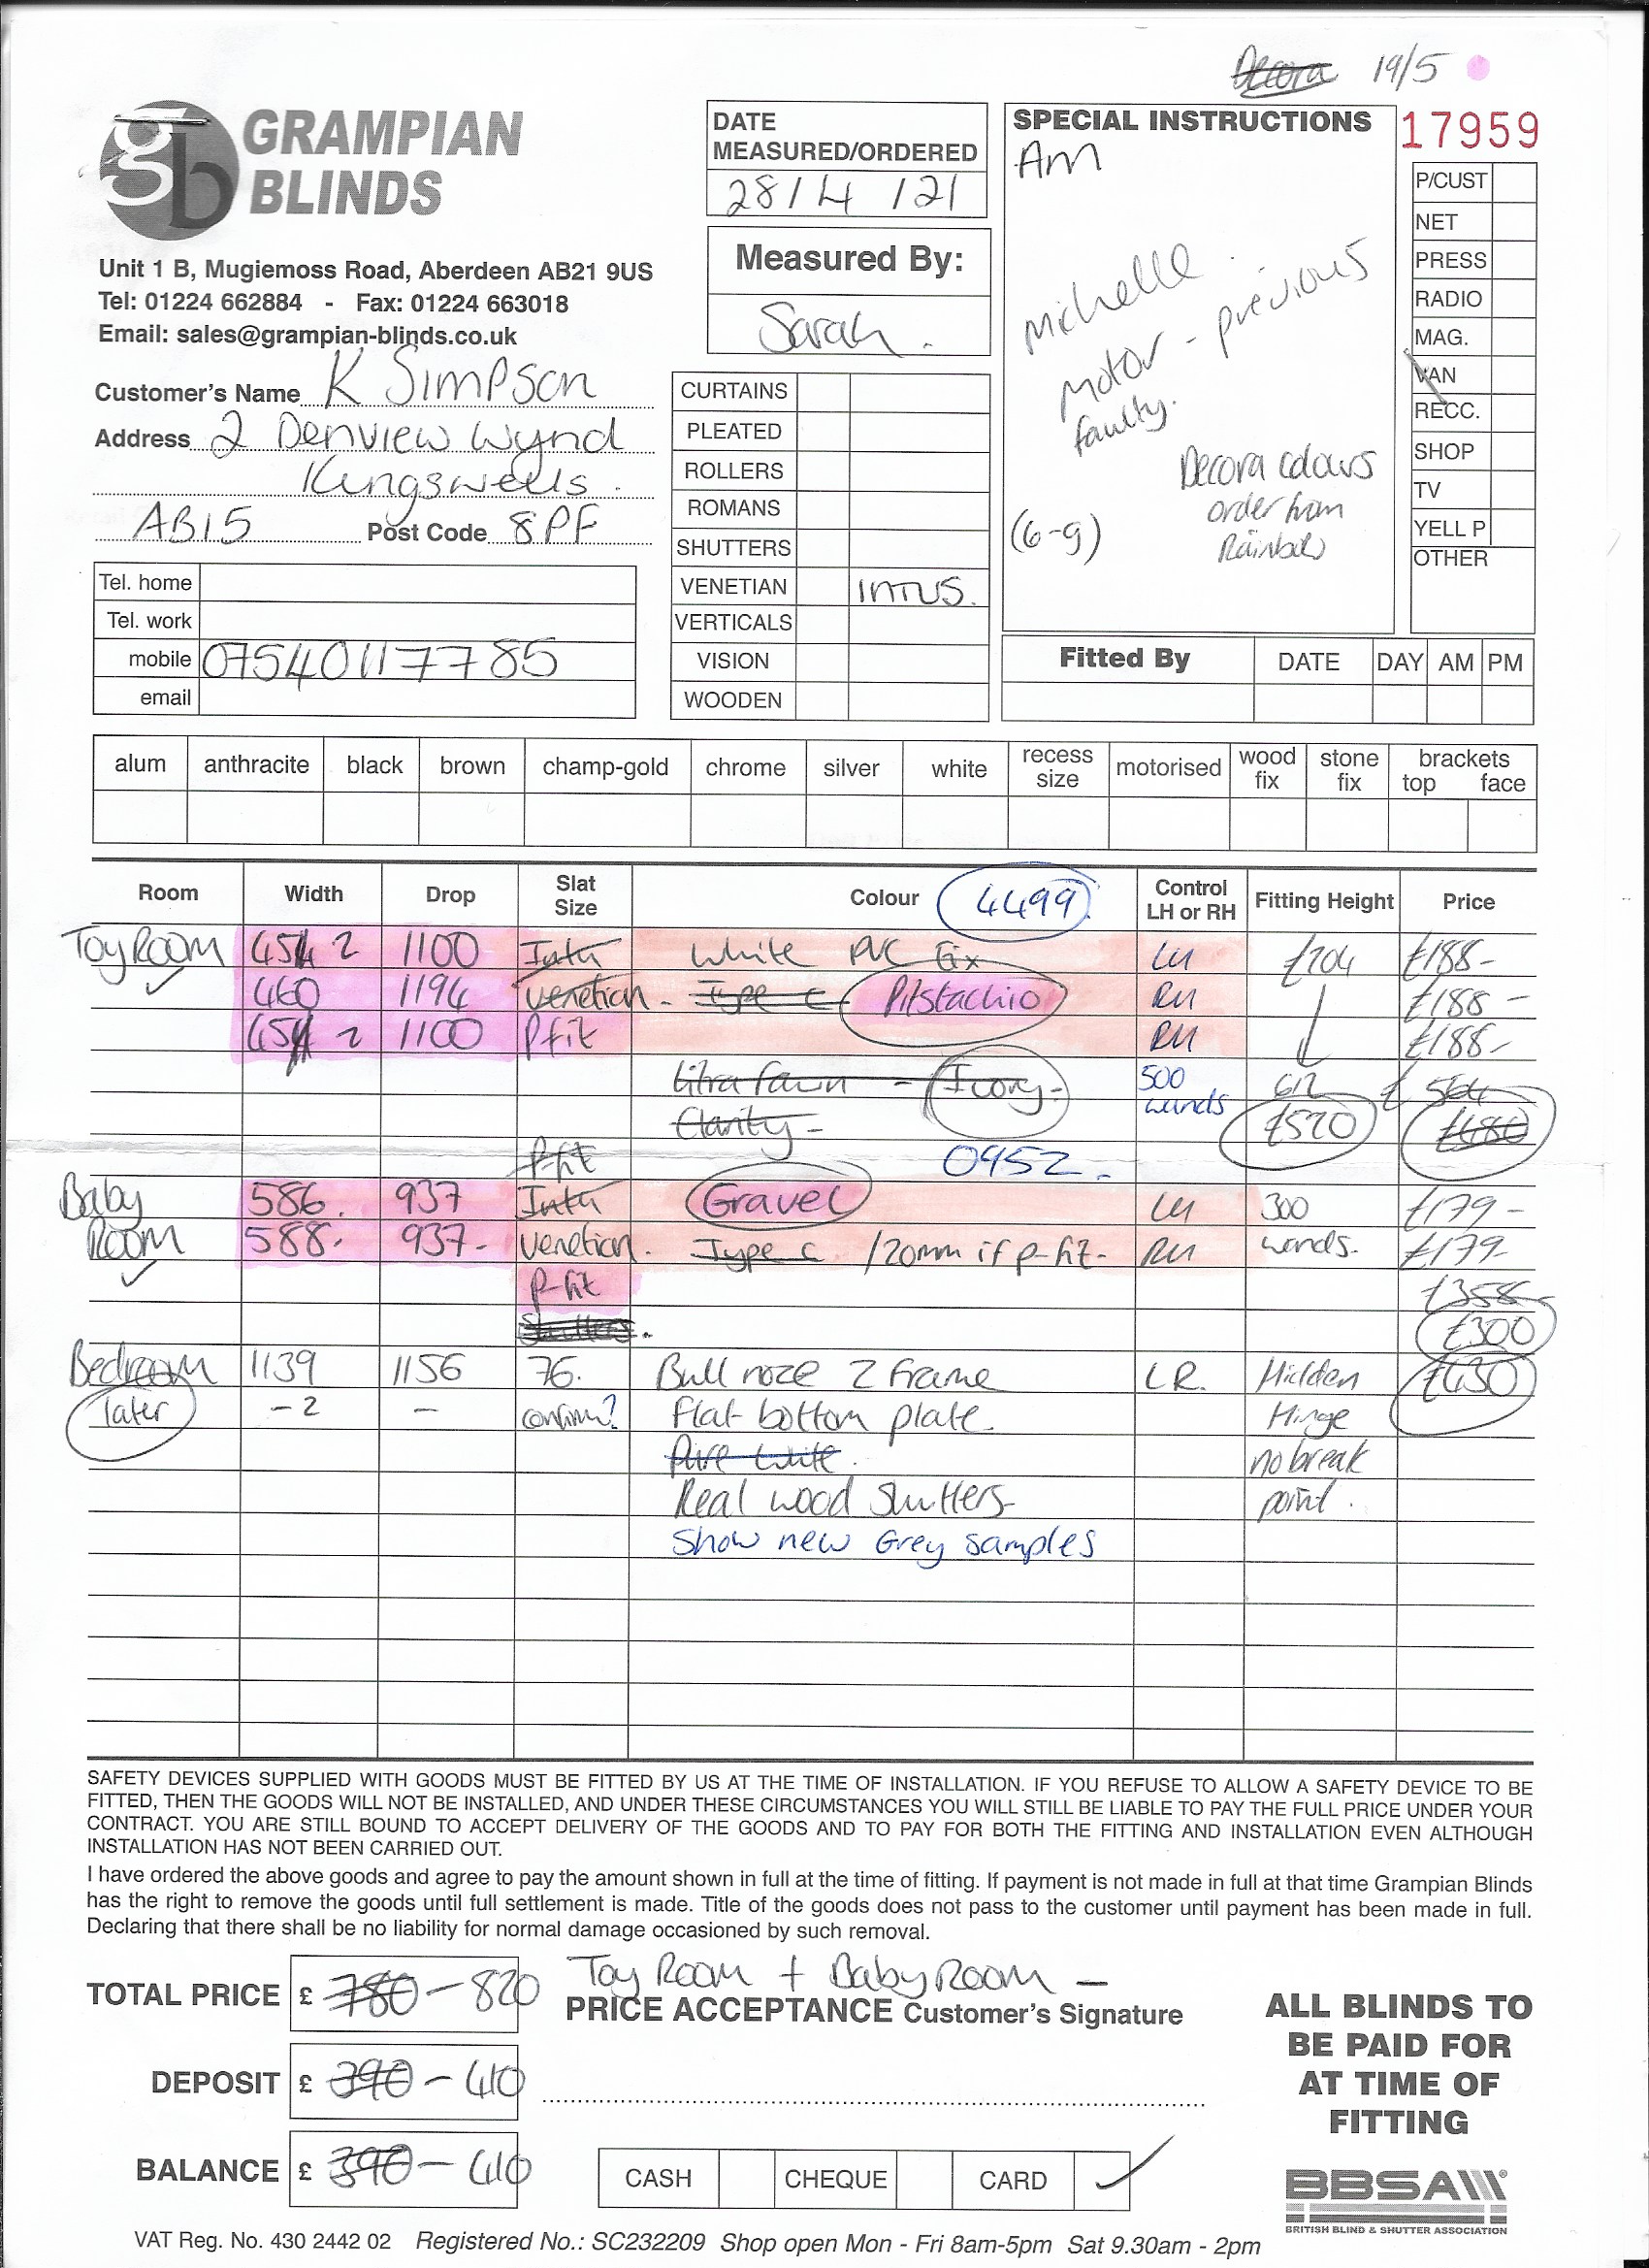 Decora 19/5
GRAMPIAN
BLINDS
gb
Unit 1 B, Mugiemoss Road, Aberdeen AB21 9US
Tel: 01224 662884 - Fax: 01224 663018
Email: sales@grampian-blinds.co.uk
Customer's Name K Simpson
Address 2 Denview Wynd
Kingswells.
AB15 Post Code 8PF
Tel. home
Tel. work
mobile 07540117785
email
DATE
MEASURED/ORDERED
28/4/21
Measured By:
Sarah.
CURTAINS
PLEATED
ROLLERS
ROMANS
SHUTTERS
VENETIAN INTUS.
VERTICALS
VISION
WOODEN
SPECIAL INSTRUCTIONS
AM
Michelle
Motor - previous
faulty.
Decora colours
order from
Rainbow
(6-9)
17959
P/CUST
NET
PRESS
RADIO
MAG.
VAN
RECC.
SHOP
TV
YELL P
OTHER
Fitted By DATE DAY AM PM
alum anthracite black brown champ-gold chrome silver white recess size motorised wood fix stone fix brackets top face
Room Width Drop Slat Size Colour 4499. Control LH or RH Fitting Height Price
Toy Room 454 2 1100 Intu White PVC Fix LH £204 £188-
460 1194 venetian- Type C Pitstachio RH £188-
454 2 1100 Pfit RH £188-
- Ivory- 500 612 £564
Clarity- wands £520 £480
P-fit 0952.
Baby 586. 937 Intu Gravel LH 300 £179-
Room 588- 937- Venetian. Type C /20mm if p-fit- RH wands. £179-
p-fit £358-
Shutters. £300
Bedroom 1139 1156 76. Bull noze Z Frame LR. Hidden £430
later -2 - confirm? Flat bottom plate. Hinge
Pure White. no break
Real wood Shutters- point.
Show new Grey samples
SAFETY DEVICES SUPPLIED WITH GOODS MUST BE FITTED BY US AT THE TIME OF INSTALLATION. IF YOU REFUSE TO ALLOW A SAFETY DEVICE TO BE
FITTED, THEN THE GOODS WILL NOT BE INSTALLED, AND UNDER THESE CIRCUMSTANCES YOU WILL STILL BE LIABLE TO PAY THE FULL PRICE UNDER YOUR
CONTRACT. YOU ARE STILL BOUND TO ACCEPT DELIVERY OF THE GOODS AND TO PAY FOR BOTH THE FITTING AND INSTALLATION EVEN ALTHOUGH
INSTALLATION HAS NOT BEEN CARRIED OUT.
I have ordered the above goods and agree to pay the amount shown in full at the time of fitting. If payment is not made in full at that time Grampian Blinds
has the right to remove the goods until full settlement is made. Title of the goods does not pass to the customer until payment has been made in full.
Declaring that there shall be no liability for normal damage occasioned by such removal.
TOTAL PRICE £ 780 - 820
Toy Room + Baby Room -
PRICE ACCEPTANCE Customer's Signature
DEPOSIT £ 390 - 410
BALANCE £ 390 - 410
CASH CHEQUE CARD
ALL BLINDS TO
BE PAID FOR
AT TIME OF
FITTING
BBSA
BRITISH BLIND & SHUTTER ASSOCIATION
VAT Reg. No. 430 2442 02 Registered No.: SC232209 Shop open Mon - Fri 8am-5pm Sat 9.30am - 2pm